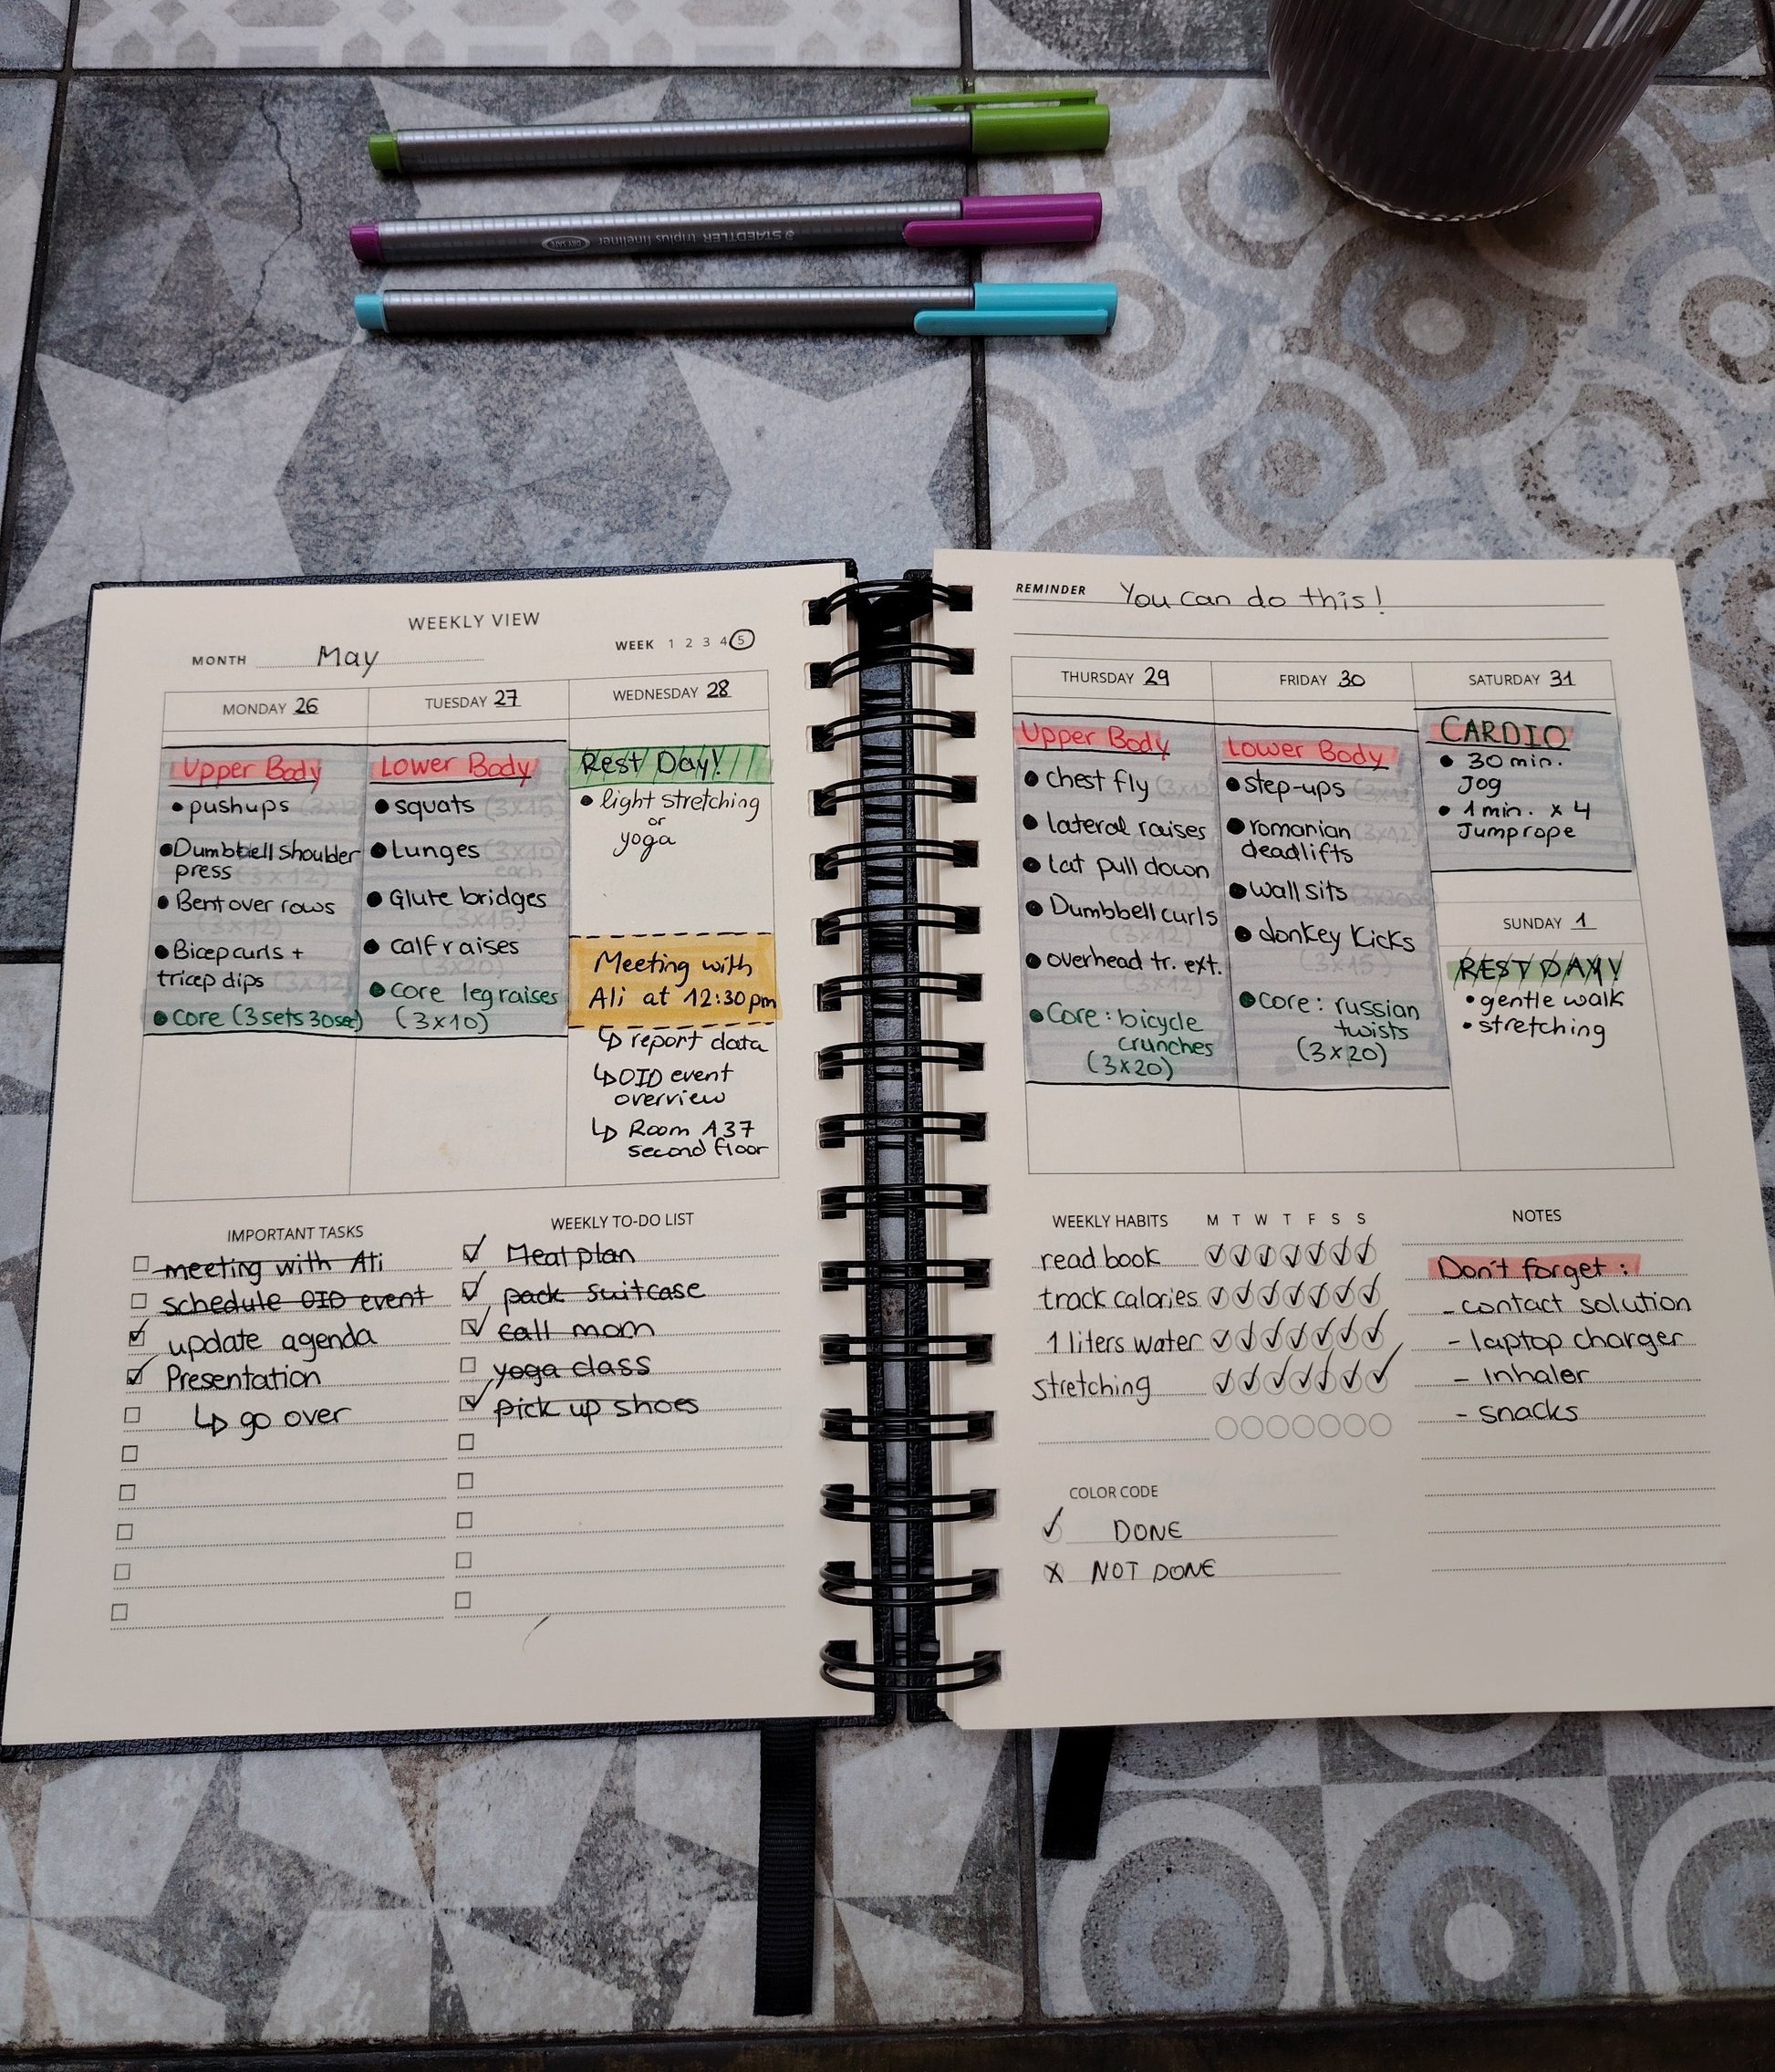 STAEDTLER triplus fineliner
DRY SAFE
WEEKLY VIEW
MONTH May
WEEK 1 2 3 4 5
MONDAY 26
Upper Body
• pushups
• Dumbbell shoulder
press (3x12)
• Bent over rows
(3x12)
• Bicep curls +
tricep dips (3x12)
• core (3 sets 30 sec)
TUESDAY 27
Lower Body
• squats (3x15)
• Lunges (3x10)
each
• Glute bridges
(3x15)
• calf raises
(3x20)
• core leg raises
(3x10)
WEDNESDAY 28
Rest Day!
• light stretching
or
yoga
Meeting with
Ali at 12:30pm
↳ report data
↳ OID event
overview
↳ Room A37
second floor
IMPORTANT TASKS
meeting with Ali
schedule OID event
update agenda
Presentation
↳ go over
WEEKLY TO-DO LIST
Meal plan
pack suitcase
call mom
yoga class
pick up shoes
REMINDER You can do this!
THURSDAY 29
Upper Body
• chest fly (3x12)
• lateral raises
• Lat pull down
(3x12)
• Dumbbell curls
(3x12)
• overhead tr. ext.
(3x12)
• Core: bicycle
crunches
(3x20)
FRIDAY 30
Lower Body
• step-ups
• romanian (3x12)
deadlifts
• wall sits
• donkey kicks
(3x15)
• Core: russian
twists
(3x20)
SATURDAY 31
CARDIO
• 30 min.
Jog
• 1 min. x 4
Jumprope
SUNDAY 1
REST DAY!
• gentle walk
• stretching
WEEKLY HABITS M T W T F S S
read book ✓ ✓ ✓ ✓ ✓ ✓ ✓
track calories ✓ ✓ ✓ ✓ ✓ ✓ ✓
1 liters water ✓ ✓ ✓ ✓ ✓ ✓ ✓
stretching ✓ ✓ ✓ ✓ ✓ ✓ ✓
COLOR CODE
✓ DONE
x NOT DONE
NOTES
Don't forget:
- contact solution
- laptop charger
- Inhaler
- snacks